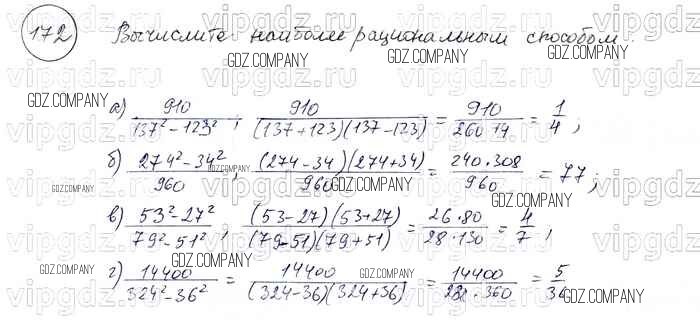 172 Вычислите наиболее рациональным способом:
а) 910/(137² - 123²); 910/((137+123)(137-123)) = 910/(260·14) = 1/4;
б) (274² - 34²)/960; ((274-34)(274+34))/960 = (240·308)/960 = 77;
в) (53² - 27²)/(79² - 51²); ((53-27)(53+27))/((79-51)(79+51)) = (26·80)/(28·130) = 4/7;
г) 14400/(324² - 36²) = 14400/((324-36)(324+36)) = 14400/(288·360) = 5/36
vipgdz.ru
GDZ.COMPANY